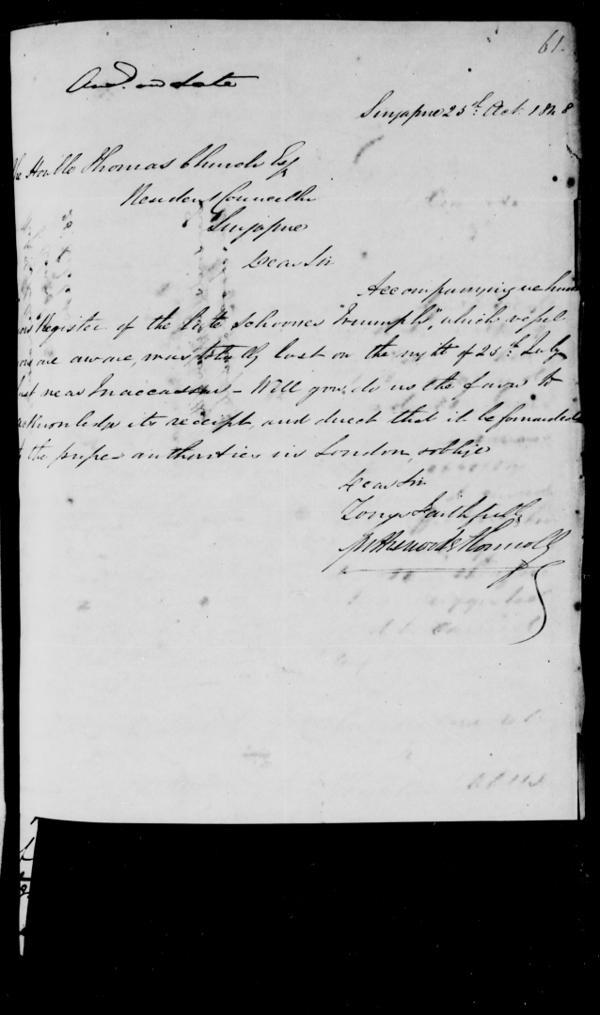 61.
Ansd. on date
Singapore 25th Oct. 1848
Honble Thomas Church Esq
Resident Councillor
Singapore
Dear Sir
Accompanying we hand
Register of the late Schooner "Triumph", which vessel
you are aware, was totally lost on the night of 25th July
last near Macassar - Will you do us the favor to
acknowledge its receipt, and direct that it be forwarded
to the proper authorities in London, & oblige
Dear Sir
Yours Faithfully